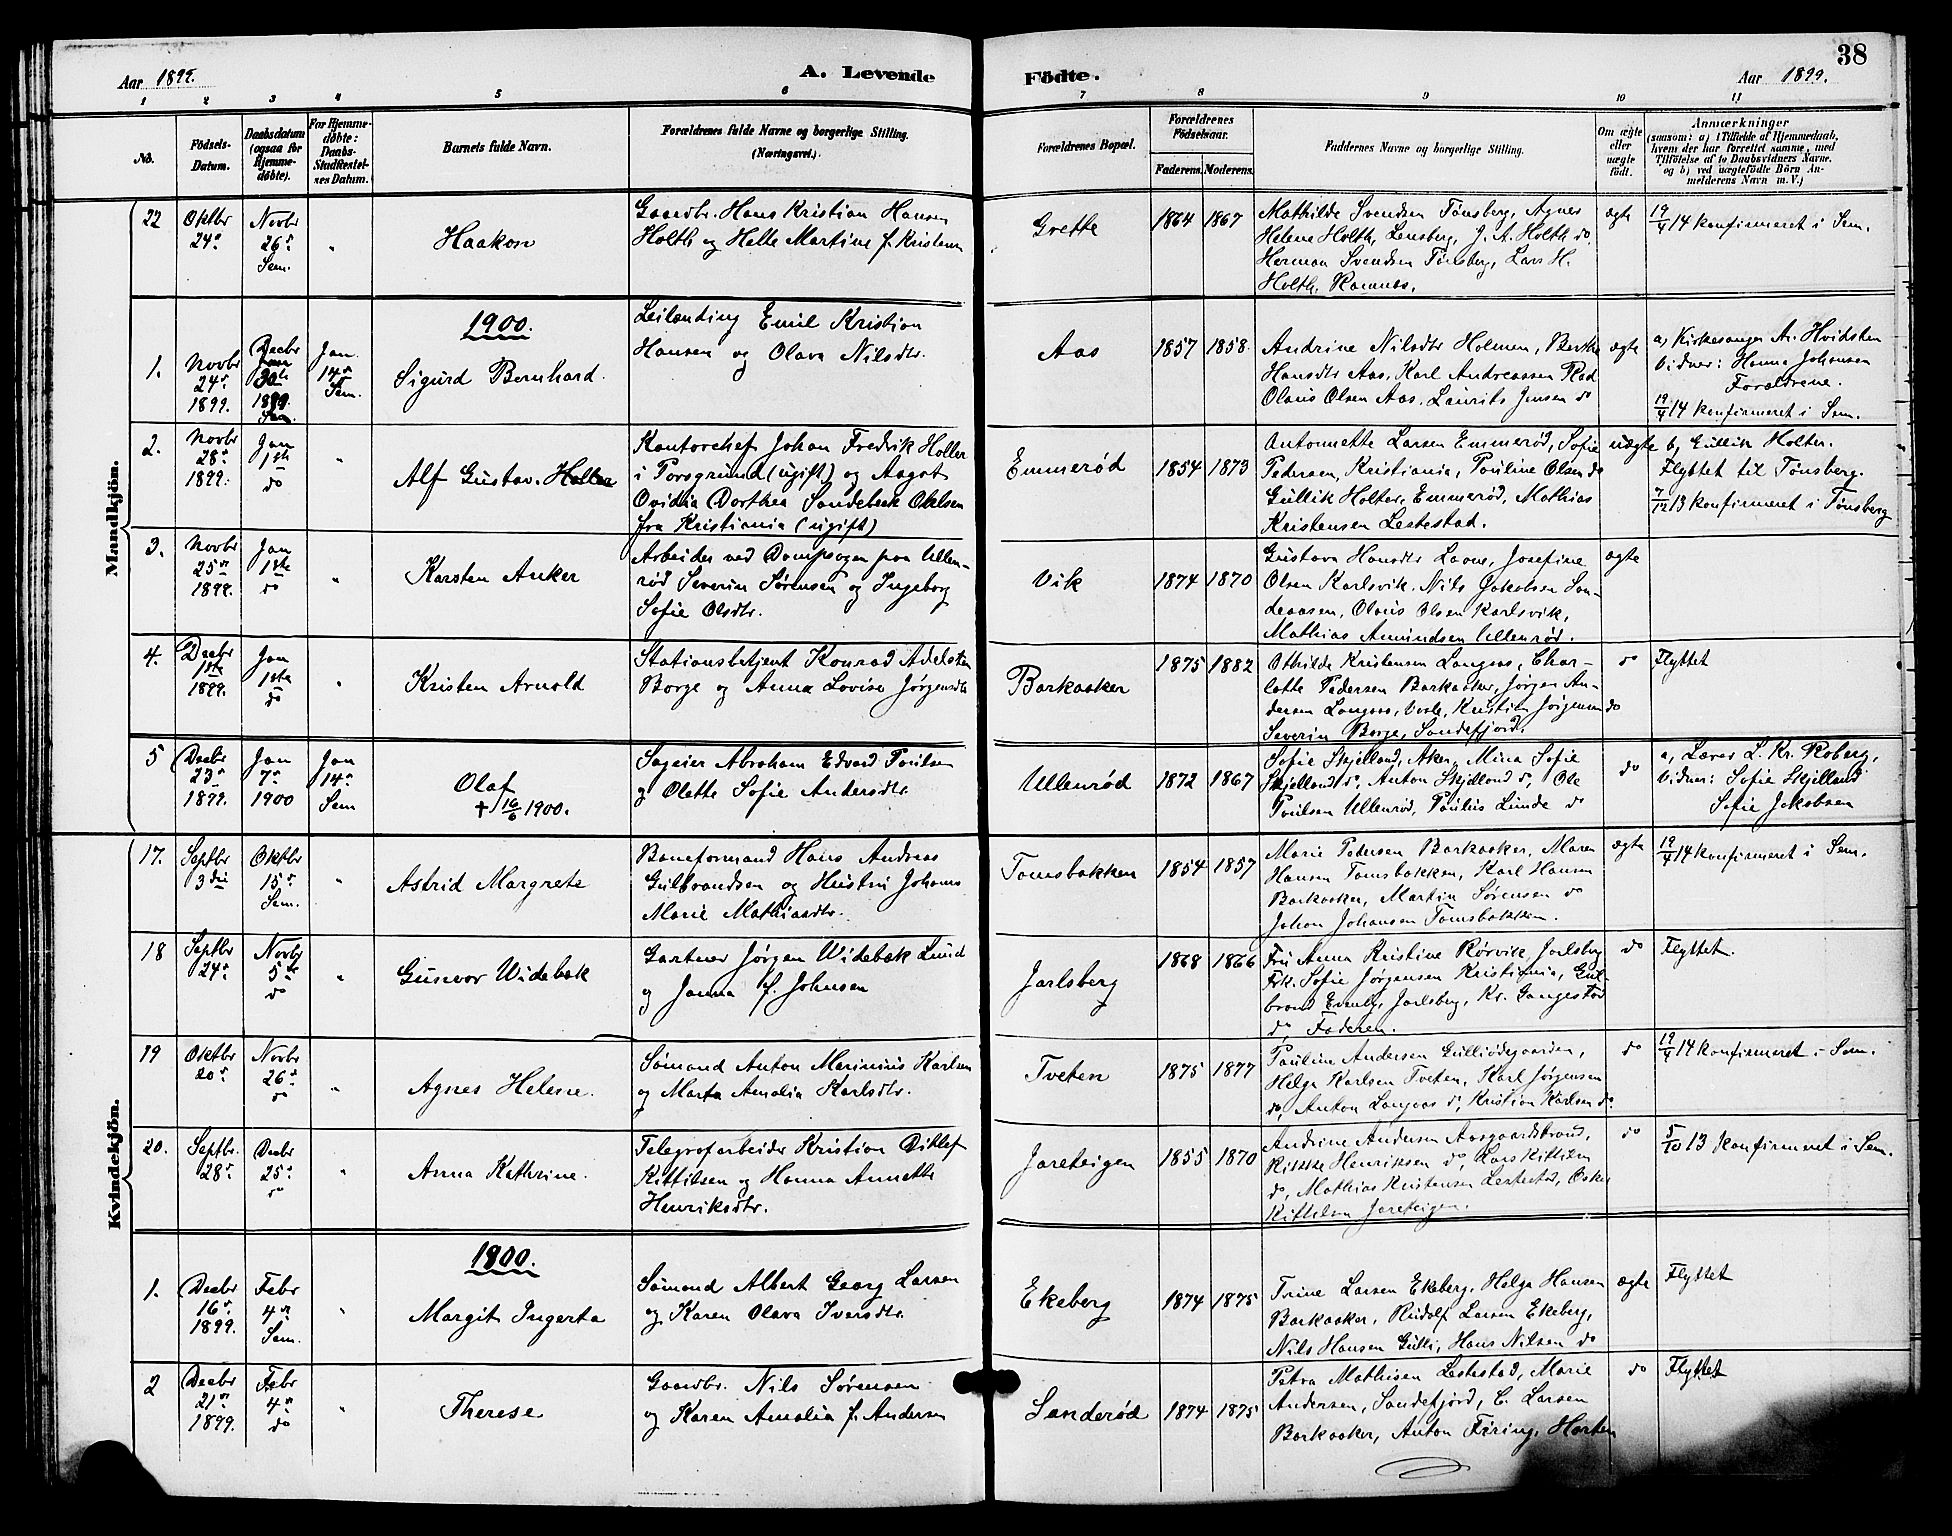 38
Aar 1899.
A. Levende Födte.
Aar 1899.
1 2 3 4 5 6 7 8 9 10 11
No.
Födsels-
Datum.
Daabsdatum
(ogsaa for
Hjemme-
døbte).
For Hjemme-
døbte:
Daabs-
Stadfæstel-
ses Datum.
Barnets fulde Navn.
Forældrenes fulde Navne og borgerlige Stilling.
(Næringsvei.)
Forældrenes Bopæl.
Forældrenes
Födselsaar.
Faderens. Moderens.
Faddernes Navne og borgerlige Stilling.
Om ægte
eller
uægte
født.
Anmærkninger
(saasom: a) i Tilfælde af Hjemmedaab,
hvem der har forrettet samme, med
Tilföielse af to Daabsvidners Navne,
og b) ved uægtefödte Börn An-
melderens Navn m. V.)
Mandkjön.
22
Oktbr
24de
Novbr
26de
Sem.
"
Haakon
Gaardbr. Hans Kristian Hansen
Holth og Helle Martine f. Kristensen
Grette
1864 1867
Mathilde Svendsen Tønsberg, Agnes
Helene Holth, Lensberg, J. A. Holth do.
Herman Svendsen Tønsberg, Lars H.
Holth, Ramnæs.
ægte
19/4 14 konfirmeret i Sem.
1900.
1.
Novbr
24de
1899.
Decbr
30te
1899.
Sem.
Jan.
14de
Sem.
Sigurd Bernhard.
Leilending Emil Kristian
Hansen og Olava Nilsdtr.
Aas
1857 1858.
Andrine Nilsdtr Holmen, Berthe
Hansdtr Aas, Karl Andreassen Rød
Olaus Olsen Aas, Laurits Jensen do
ægte
a, Kirkesanger A. Hvidsten
Vidner: Hanna Johansen
Forældrene.
19/4 14 konfirmeret i Sem.
2.
Novbr
28de
1899.
Jan
1ste
do
"
Alf Gustav. Holler
Kontorchef Johan Fredrik Holler
i Porsgrund (ugift) og Aagot
Ovidia Dorthea Sandebeck Ohlsen
fra Kristiania (ugift)
Emmerød
1854 1873
Antonnette Larsen Emmerød, Sofie
Pedersen, Kristiania, Pouline Olsen do
Gullik Holter, Emmerød, Mathias
Kristensen Lestestad.
uægte
b, Gullik Holter.
Flyttet til Tønsberg.
7/12 13 konfirmeret i Tønsberg
3.
Novbr
25de
1899.
Jan
1ste
do
"
Karsten Anker
Arbeider ved Dampsagen paa Ullen-
rød Severin Sørensen og Ingeborg
Sofie Olsdtr.
Vik
1874 1870
Gustava Hansdtr Laans, Josefine
Olsen Karlsvik, Nils Jakobsen Son-
deaasen, Olaus Olsen Karlsvik,
Mathias Amundsen Ullenrød.
ægte
4.
Decbr
1ste
1899.
Jan
1ste
do
"
Kristen Arnold
Stationsbetjent Konrad Adelsten
Borge og Anna Lovise Jørgensdtr
Barkaaker
1875 1882
Othilde Kristensen Langaas, Char-
lotte Pedersen Barkaaker, Jørgen An-
dersen Langaas, Vaale, Kristian Jørgensen do
Severin Borge, Sandefjord.
do
Flyttet
5
Decbr
23de
1899.
Jan
7de
1900
Jan
14de
Sem
Olaf
† 16/6 1900.
Sageier Abraham Edvard Poulsen
og Olette Sofie Andersdtr.
Ullenrød
1872 1867
Sofie Skjelland, Aker, Mina Sofie
Skjelland do, Anton Skjelland do, Ole
Poulsen Ullenrød, Paulus Lunde do
do
a, Lærer L. Kr. Roberg,
Vidner: Sofie Skjelland
Sofie Jakobsen
Kvindekjön.
17.
Septbr
3die
Oktbr
15de
Sem.
"
Astrid Margrete
Baneformand Hans Andreas
Gulbrandsen og Hustru Johanne
Marie Mathiasdtr.
Tomsbakken
1854 1857
Marie Pedersen Barkaaker, Maren
Hansen Tomsbakken, Karl Hansen
Barkaaker, Martin Sørensen do
Johan Johansen Tomsbakken.
ægte
19/4 14 konfirmeret i Sem.
18
Septbr
24de
Novbr
5te
do
"
Gunvor Widebæk
Gartner Jørgen Widebæk Lund
og Janna f. Johnsen
Jarlsberg
1868 1866
Fru Anna Kristine Rørvik, Jarlsberg
Frk. Sofie Jørgensen Kristiania, Gul-
brand Evenby, Jarlsberg, Kr. Gangestad
do, Faderen.
do
Flyttet.
19
Oktbr
20de
Novbr
26de
do
"
Agnes Helene.
Sømand Anton Marinius Karlsen
og Marta Amalia Karlsdtr.
Tveten
1875 1877
Pauline Andersen Gulliødegaarden,
Helga Karlsen Tveten, Karl Jørgensen
do, Anton Langaas do, Kristian Karlsen do.
do
19/4 14 konfirmeret i Sem.
20.
Septbr.
28de
Decbr
25de
do
"
Anna Kathrine.
Telegrafarbeider Kristian Ditlef
Kittilsen og Hanna Annette
Henriksdtr.
Jareteigen
1855 1870
Andrine Andersen Aasgaardstrand,
Rikke Henriksen do, Lars Kittilsen
do, Mathias Kristensen Lestestad, Oskar
Kittelsen Jareteigen.
do
5/10 13 konfirmeret i Sem.
1800.
1.
Decbr
16de
1899.
Febr
4de
Sem.
"
Margit Ingerta
Sømand Albert Georg Larsen
og Karen Olava Iversdtr.
Ekeberg
1874 1875
Trine Larsen Ekeberg, Helga Hansen
Barkaaker, Rudolf Larsen Ekeberg,
Nils Hansen Gulli, Hans Nilsen do
ægte
Flyttet
2
Decbr
21de
1899.
Febr
4de
do
"
Therese
Gaardbr. Nils Sørensen
og Karen Amalia f. Andersen
Sanderød
1874 1875
Petra Mathisen Lestestad, Marie
Andersen, Sandefjord, C. Larsen
Barkaaker, Anton Firing, Horten
do
Flyttet